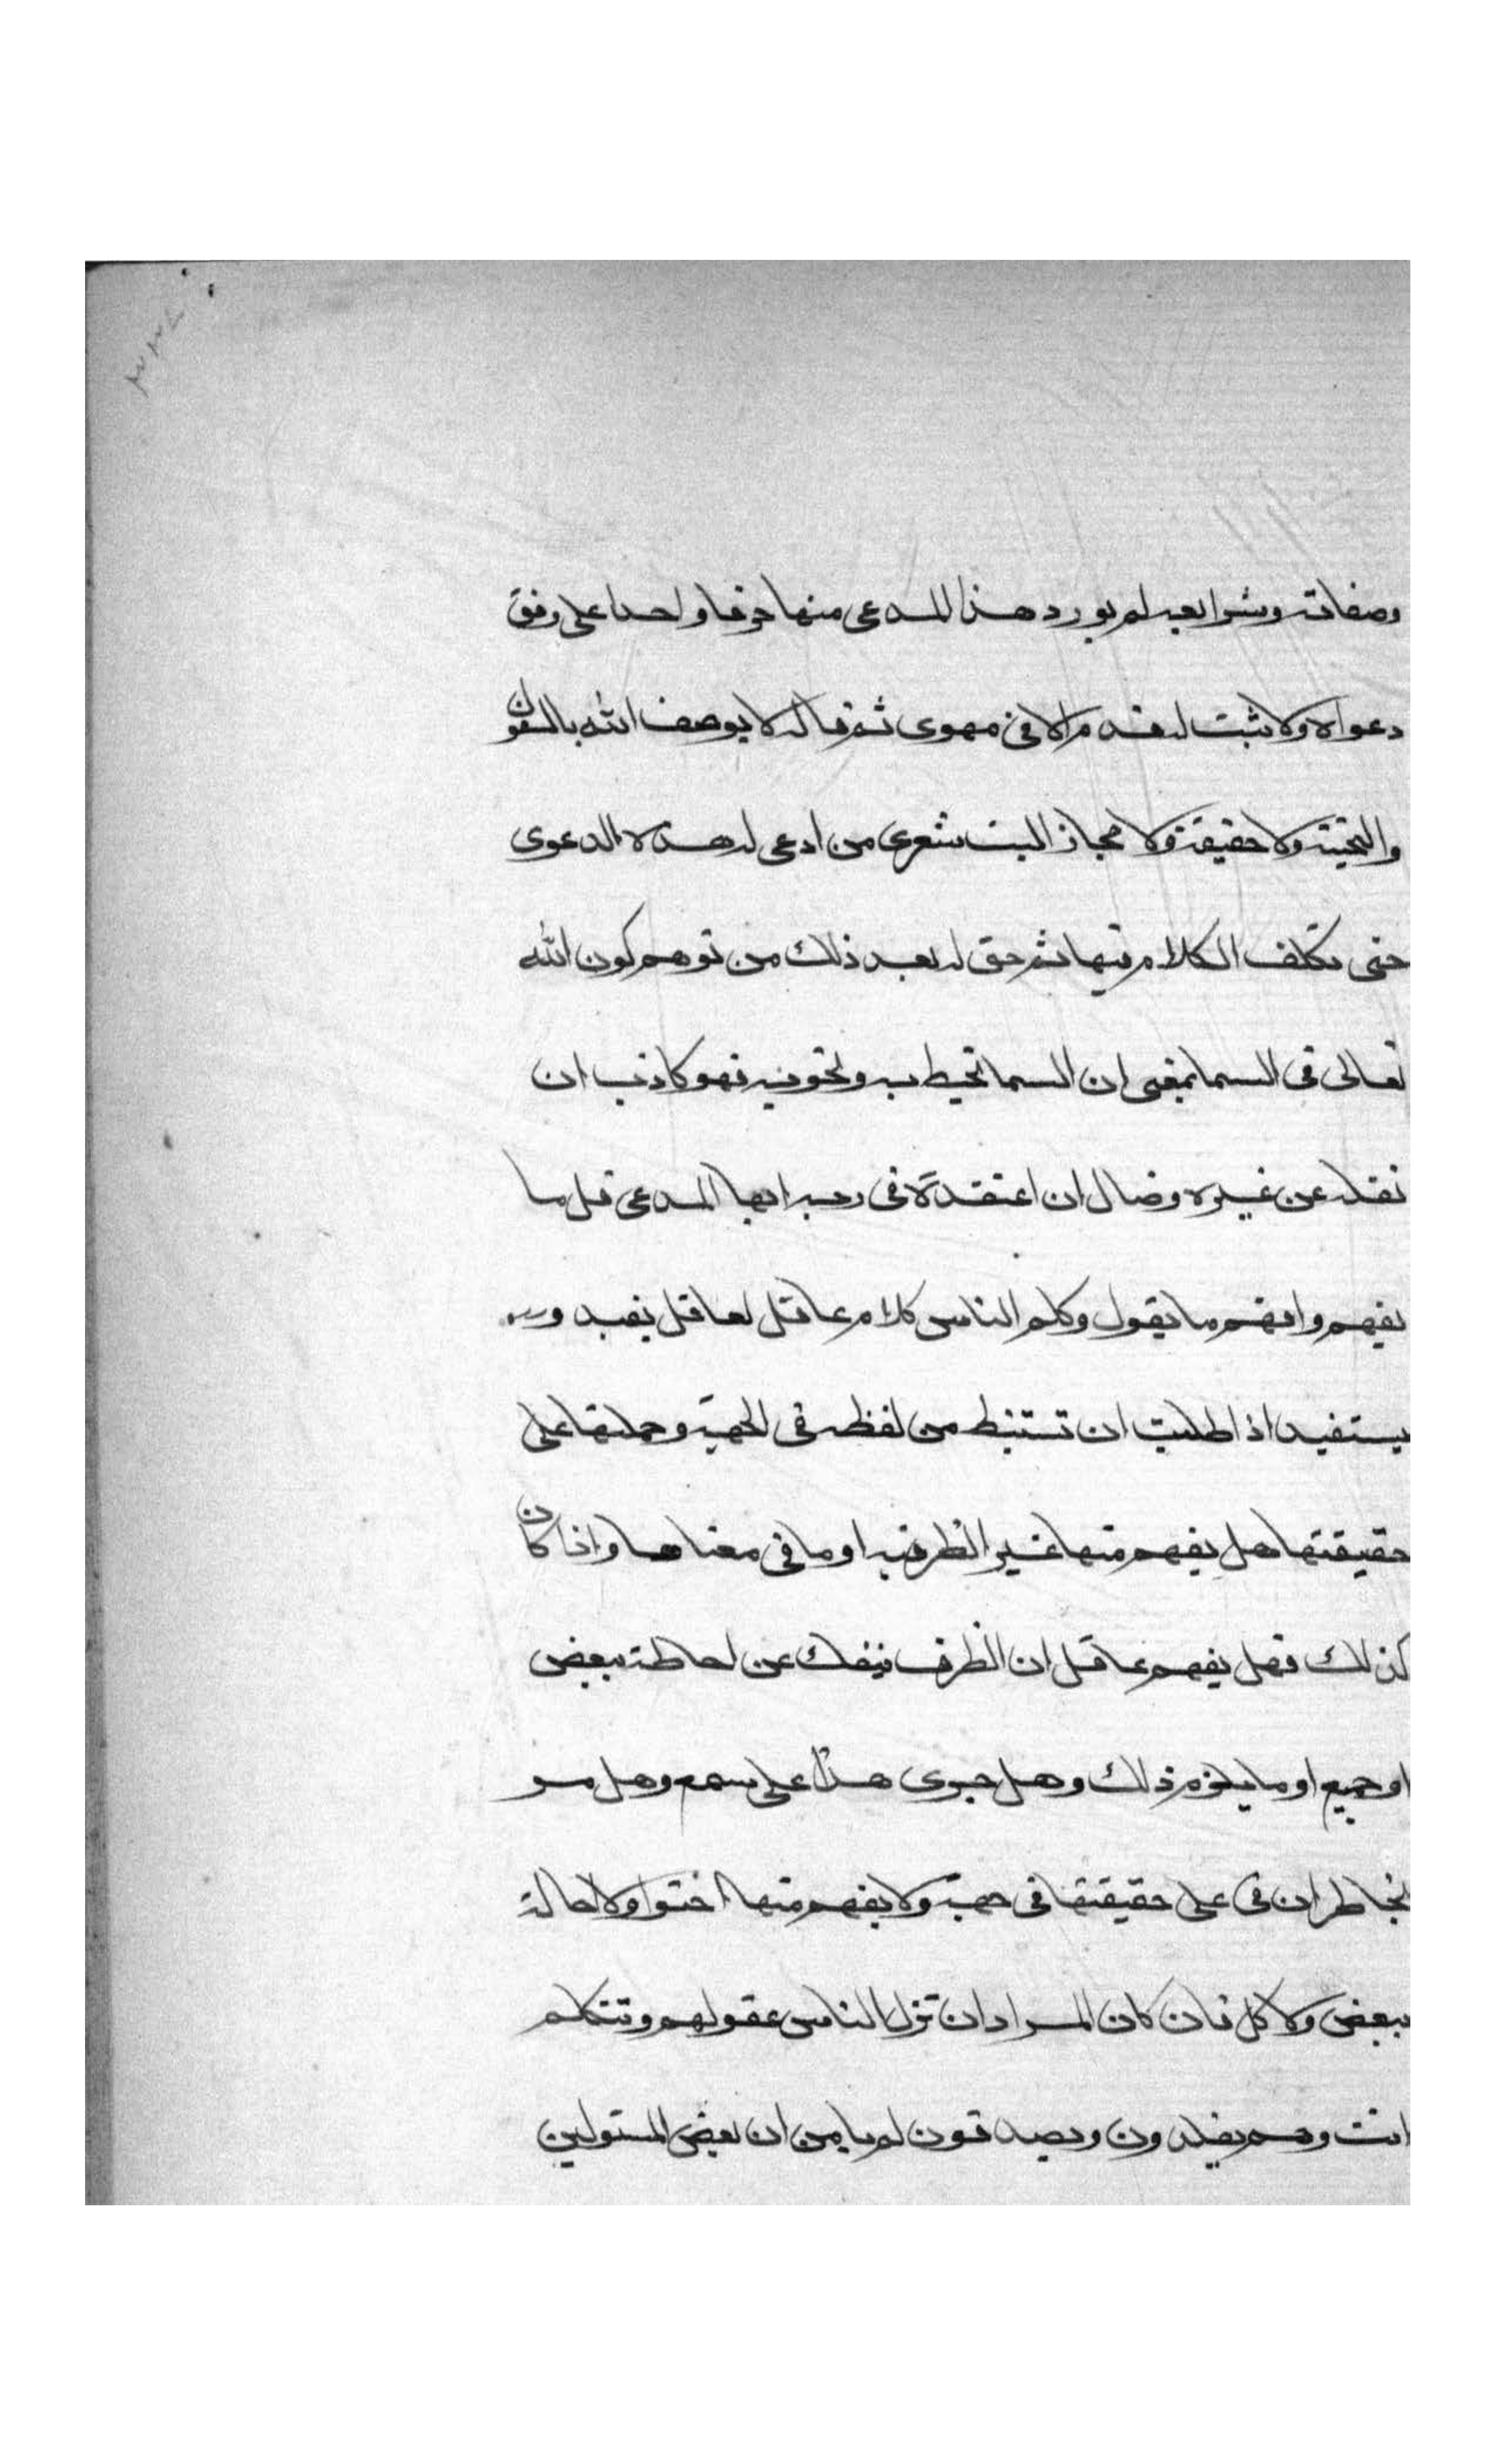 وصفاته وشرايعه لم يورد هذا المدعى منها حرفا واحدا على وفق
دعواه ولا يثبت له قدم الا فى مهوى ثم قال لا يوصف الله بالفوق
والتحتية لا حقيقة ولا مجاز ليت شعرى من ادعى له هذه الدعوى
حتى تكلف الكلام فيها ثم حق له بعد ذلك من توهم كون الله
تعالى فى السما بمعنى ان السما تحيط به وتحويه فهو كاذب ان
نقله عن غيره وضال ان اعتقده فى ربه ايها المدعى قل ما
يفهم وافهم ما تقول وكلم الناس كلام عاقل لعاقل يفيد و
يستفيد اذا طلبت ان تستنبط من لفظه فى الجهة وحملتها على
حقيقتها هل يفهم منها غير الظرفيه او ما فى معناها واذا كان
كذلك فهل يفهم عاقل ان الظرف ينفك عن احاطة ببعض
او جميع او ما يلزم ذلك وهل جرى هذا على سمع وهل من
يخاطر ان فى على حقيقتها فى جهة ولا يفهم منها احتوا ولا احاطة
ببعض ولا كل فان كان المراد ان تزل الناس عقولهم وتتكلم
انت وهم يقلدون ويصدقون لم يامن ان بعض المسئولين